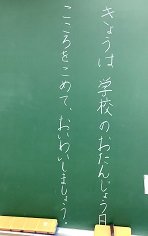 きょうは 学校のおたんじょう日
こころをこめて、おいわいしましょう。